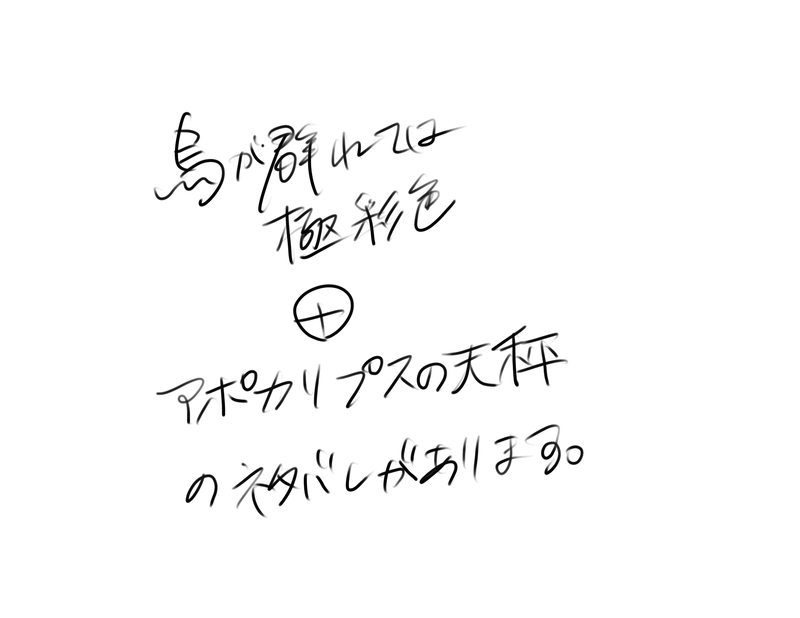 鳥が群れては
極彩色
⊕
アポカリプスの天秤
のネタバレがあります。